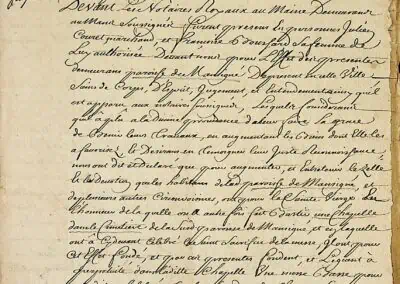 Devant Les Notaires Royaux au Maine Demeurant
au Mans Soussignés furent presens En personnes Julien
Couet marchand, et Françoise Boussard sa femme de
Luy authorisée Devant nous pour L'Effet des presentes
Demeurans paroisse de Mansigné De present en cette Ville
Sains de Corps, d'Esprit, Jugement, et Entendement ainsy quil
est apparu aux notaires soussignés, Lesquels Considerant
quil a plu a la Divine providence d'abord faire la grace
de Benir leurs travaux, en augmentant les Biens dont Elle les a
favorisé, et Desirant en temoigner leur Juste Reconnoissance
nous ont dit et Declaré que pour augmenter, et Entretenir le Zelle
et la Devotion, que les habitans de lad paroisse de Mansigné, et
de plusieurs autres Circonvoisines, ont pour la Sainte Vierge
L'honneur de la quelle on a autre fois fait Bastir une Chapelle
dans le Cimetiere de lad paroisse de Mansigné, et en laquelle
ont a Cydevant Célébré le Saint Sacrifice de la messe, Ils ont pour
cet Effet fondé, et par ces presentes fondent, et Leguent a
perpetuité dans ladite Chapelle Une messe Basse pour